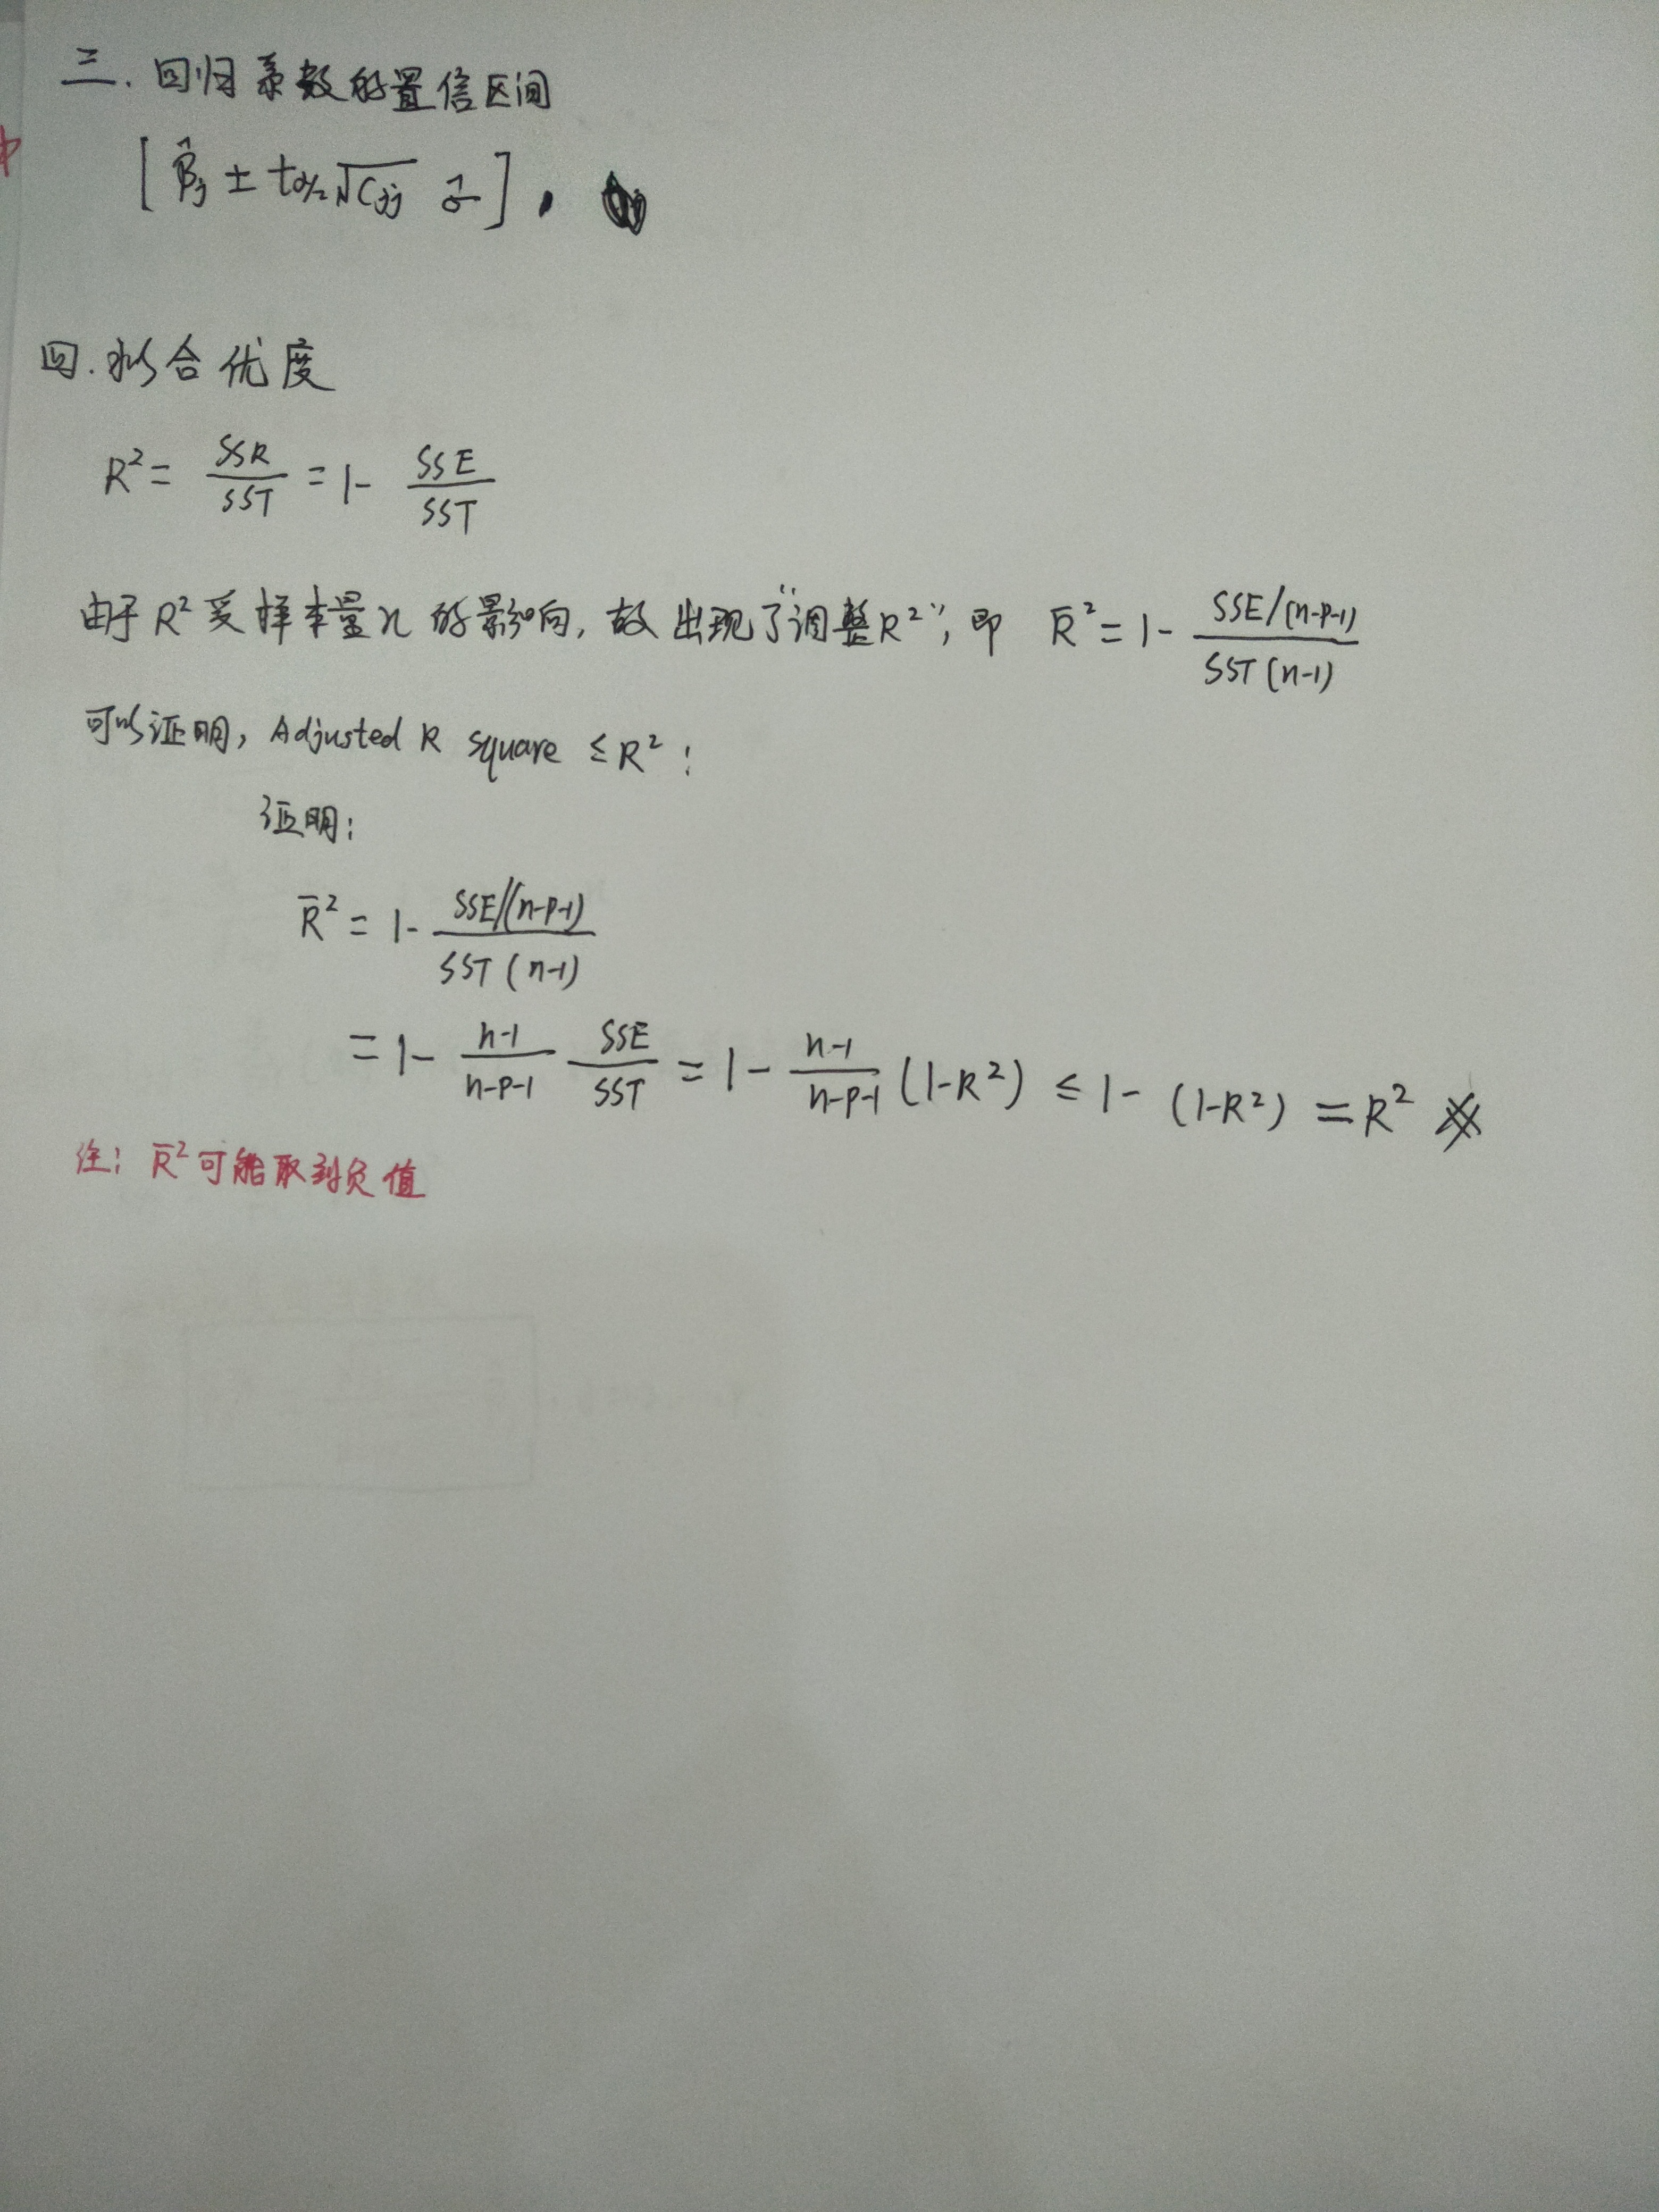 三. 回归系数的置信区间
[β̂j ± tα/2 √Cjj σ̂],
四. 拟合优度
R² = SSR/SST = 1 - SSE/SST
由于R²受样本量n的影响, 故出现了“调整R²”, 即 R̄² = 1 - SSE/(n-p-1) / SST(n-1)
可以证明, Adjusted R square ≤ R²:
证明:
R̄² = 1 - SSE/(n-p-1) / SST(n-1)
= 1 - (n-1)/(n-p-1) SSE/SST = 1 - (n-1)/(n-p-1) (1-R²) ≤ 1 - (1-R²) = R² ※
注: R̄²可能取到负值